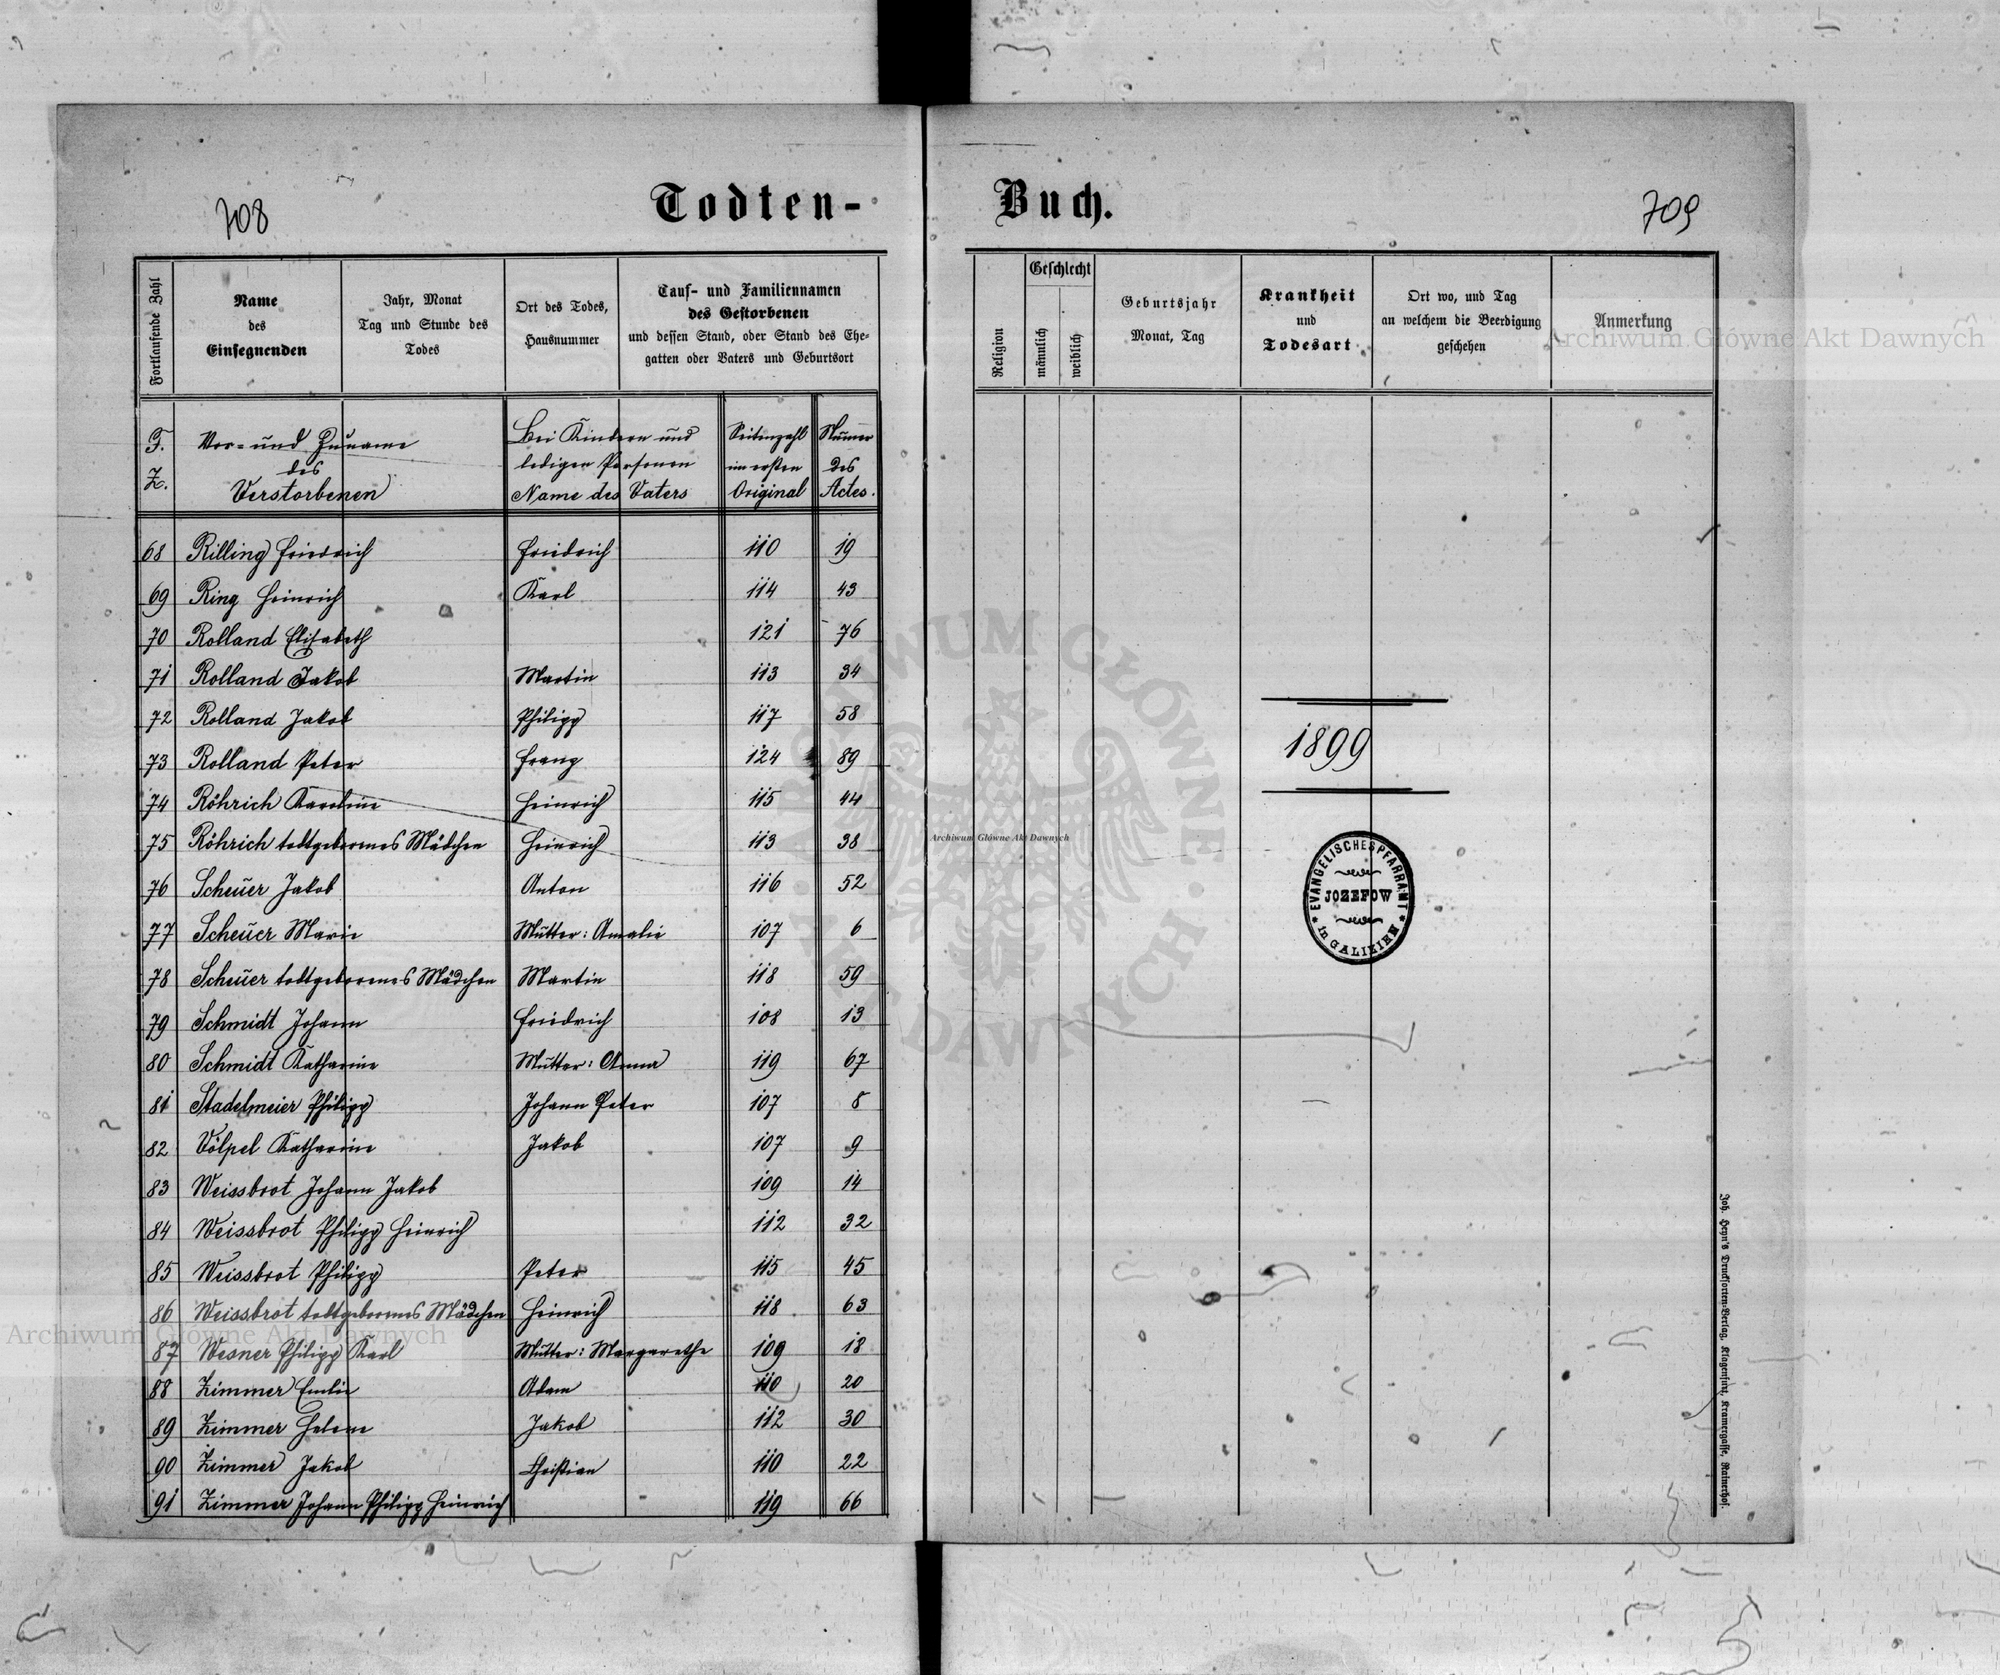 708
Todten-
Buch.
709
Fortlaufende Zahl
Name
des
Einsegnenden
Jahr, Monat
Tag und Stunde des
Todes
Ort des Todes,
Hausnummer
Tauf- und Familiennamen
des Gestorbenen
und dessen Stand, oder Stand des Ehe-
gatten oder Vaters und Geburtsort
Religion
Geschlecht
männlich
weiblich
Geburtsjahr
Monat, Tag
Krankheit
und
Todesart
Ort wo, und Tag
an welchem die Beerdigung
geschehen
Anmerkung
F.
Z.
Vor- und Zuname
des
Verstorbenen
Bei Kindern und
ledigen Personen
Name des Vaters
Seitenzahl
im ersten
Original
Numer
des
Actes.
68 Rilling Friedrich Friedrich 110 19
69 Ring Heinrich Karl 114 43
70 Rolland Elisabeth 121 76
71 Rolland Jakob Martin 113 34
72 Rolland Jakob Philipp 117 58
73 Rolland Peter Franz 124 89
74 Röhrich Karoline Heinrich 115 44
75 Röhrich todtgebornes Mädchen Heinrich 113 38
76 Scheuer Jakob Anton 116 52
77 Scheuer Marie Mutter: Amalie 107 6
78 Scheuer todtgeborenes Mädchen Martin 118 59
79 Schmidt Johann Friedrich 108 13
80 Schmidt Katharine Mutter: Anna 119 67
81 Stadelmeier Philipp Johann Peter 107 8
82 Völpel Katharine Jakob 107 9
83 Weissbrot Johann Jakob 109 14
84 Weissbrot Philipp Heinrich 112 32
85 Weissbrot Philipp Peter 115 45
86 Weissbrot todtgebornes Mädchen Heinrich 118 63
87 Wesner Philipp Karl Mutter: Margarethe 109 18
88 Zimmer Emilie Adam 110 20
89 Zimmer Helene Jakob 112 30
90 Zimmer Jakob Christian 110 22
91 Zimmer Johann Philipp Heinrich 119 66
1899
EVANGELISCHES PFARRAMT
JOZEFOW
in GALIZIEN
Joh. Heyn's Drucksorten-Verlag, Klagenfurt, Kramergasse, Rainerhof.
Archiwum Główne Akt Dawnych
Archiwum Główne Akt Dawnych
Archiwum Główne Akt Dawnych
ARCHIWUM GŁÓWNE AKT DAWNYCH